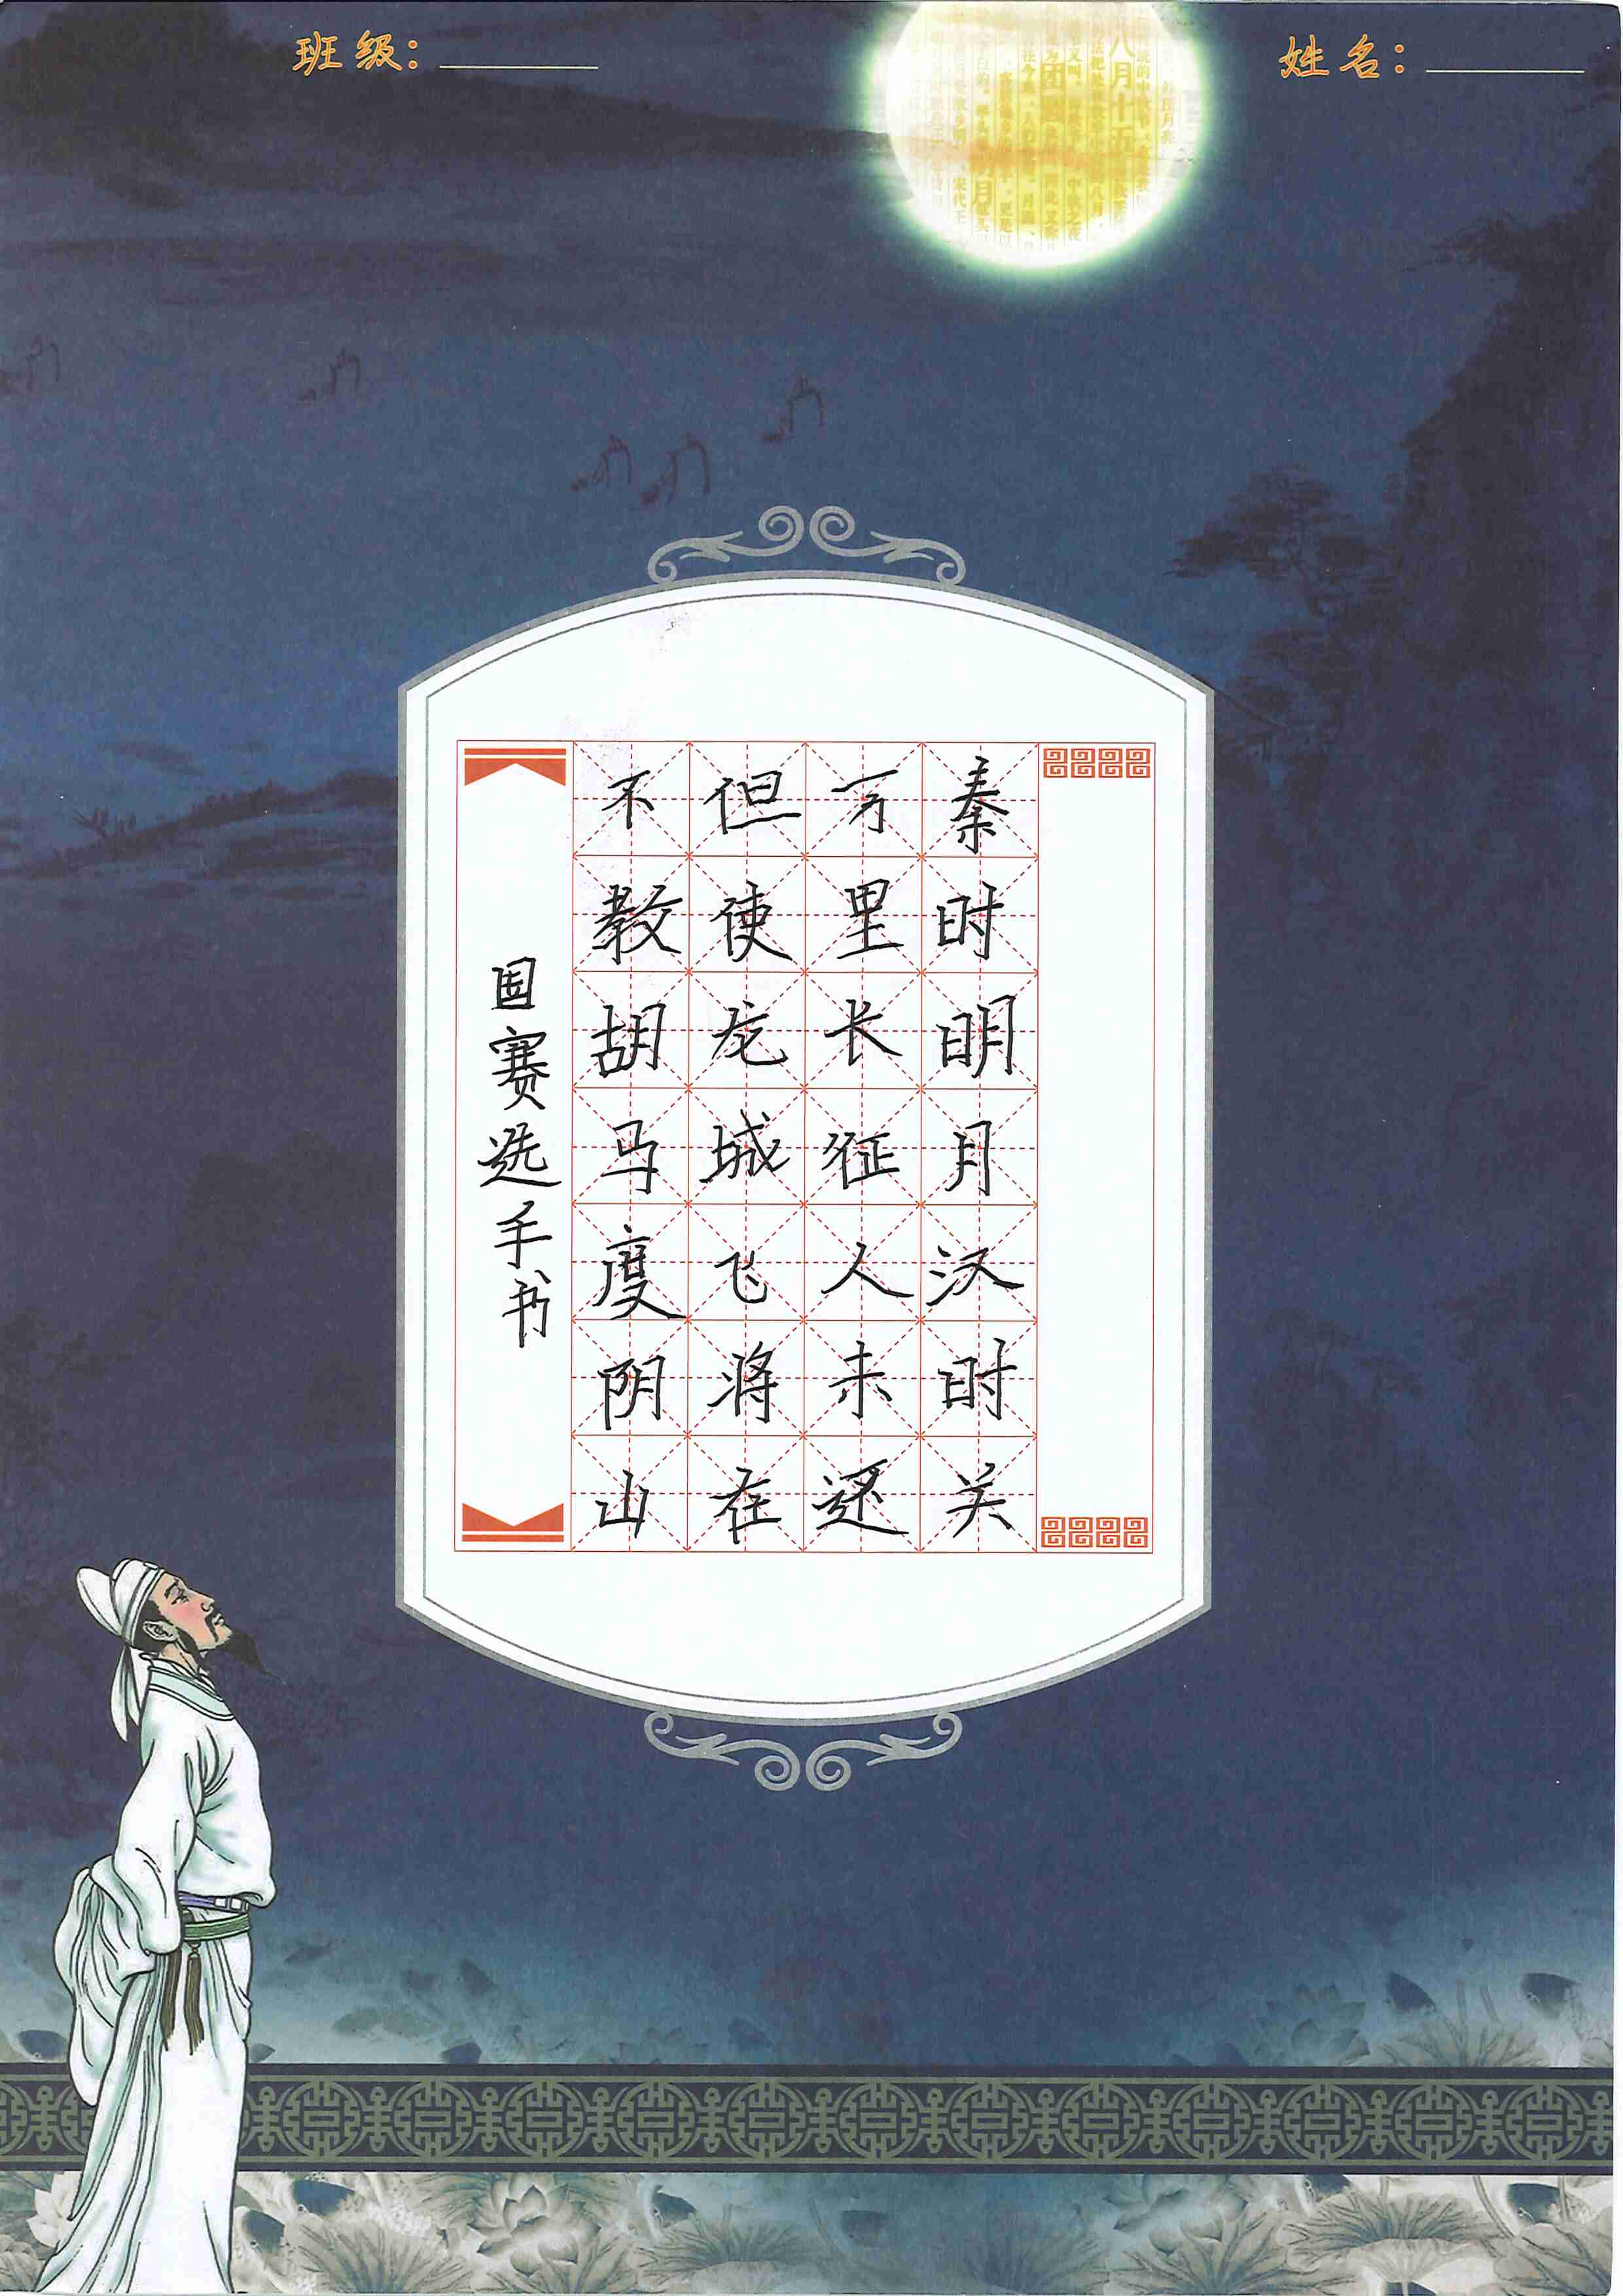 班级：
姓名：
八月十五
团圆
秦时明月汉时关
万里长征人未还
但使龙城飞将在
不教胡马度阴山
国赛选手书